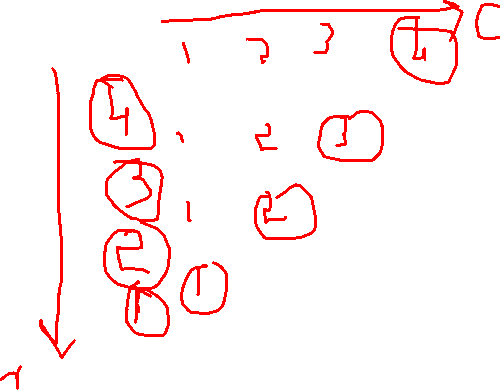 C
1 2 3 4
4 1 2 3
3 1 2
2 1
1
r